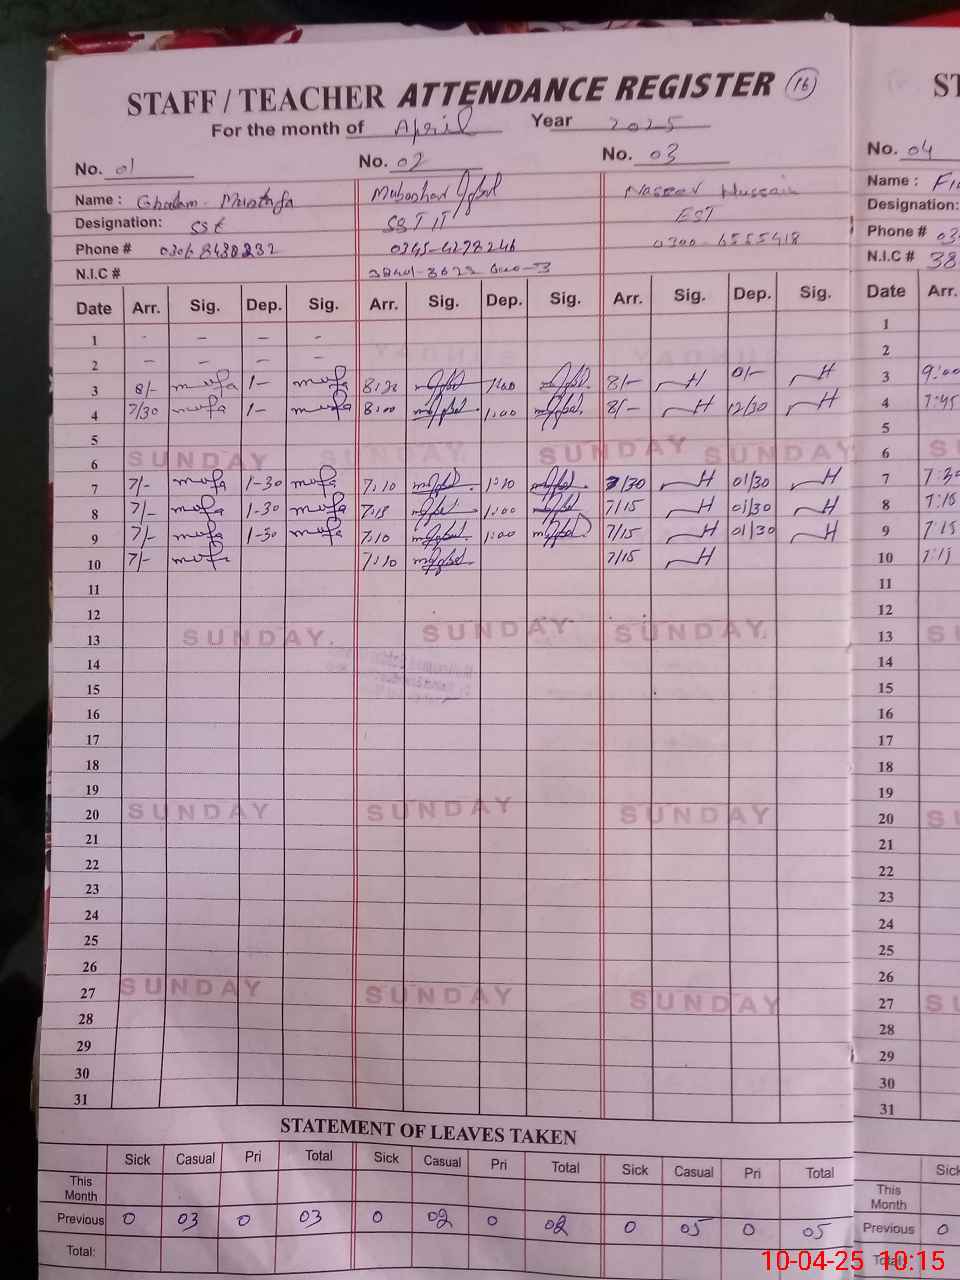 STAFF / TEACHER ATTENDANCE REGISTER 16
For the month of April Year 2025
No. 01 No. 02 No. 03 No. 04
Name : Ghulam Mustafa Mubashar Iqbal Naseer Hussain Name :
Designation: SSE SST IT EST Designation:
Phone # 0306 8430232 0345-4278246 0300-6555418 Phone # 03
N.I.C # N.I.C # 38
Date Arr. Sig. Dep. Sig. Arr. Sig. Dep. Sig. Arr. Sig. Dep. Sig. Date Arr.
1 - - - - 1
2 - - - - 2
3 8/- 1/- 8:20 1:00 8/- H 01/- H 3 9:00
4 7/30 1/- 8:00 1:00 8/- H 12/30 H 4 7:45
5 5
6 SUNDAY SUNDAY SUNDAY SUNDAY 6
7 7/- 1-30 7:10 1:10 7/30 H 01/30 H 7 7:30
8 7/- 1-30 7:15 1:00 7/15 H 01/30 H 8 7:15
9 7/- 1-30 7:10 1:00 7/15 H 01/30 H 9 7:15
10 7/- 7:10 7/15 H 10 7:15
11 11
12 12
13 SUNDAY SUNDAY SUNDAY 13
14 14
15 15
16 16
17 17
18 18
19 19
20 SUNDAY SUNDAY SUNDAY 20
21 21
22 22
23 23
24 24
25 25
26 26
27 SUNDAY SUNDAY SUNDAY 27
28 28
29 29
30 30
31 31
STATEMENT OF LEAVES TAKEN
Sick Casual Pri Total Sick Casual Pri Total Sick Casual Pri Total
This Month This Month
Previous 0 03 0 03 0 02 0 02 0 05 0 05 Previous 0
Total:
10-04-25 10:15